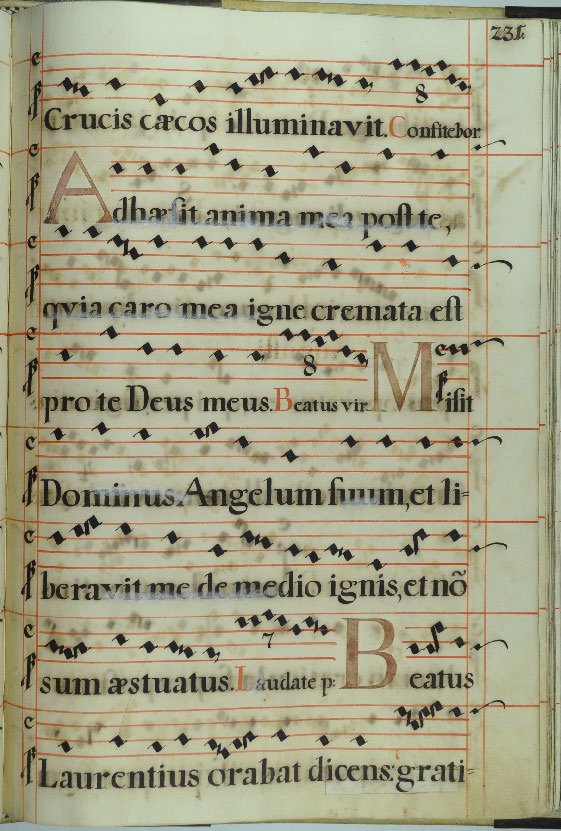 231.
Crucis cæcos illuminavit. Confitebor
8
Adhæsit anima mea post te,
qvia caro mea igne cremata est
pro te Deus meus. Beatus vir Misit
8
Dominus Angelum suum, et li=
beravit me de medio ignis, et nõ
sum æstuatus. Laudate p: Beatus
7
Laurentius orabat dicens: grati=